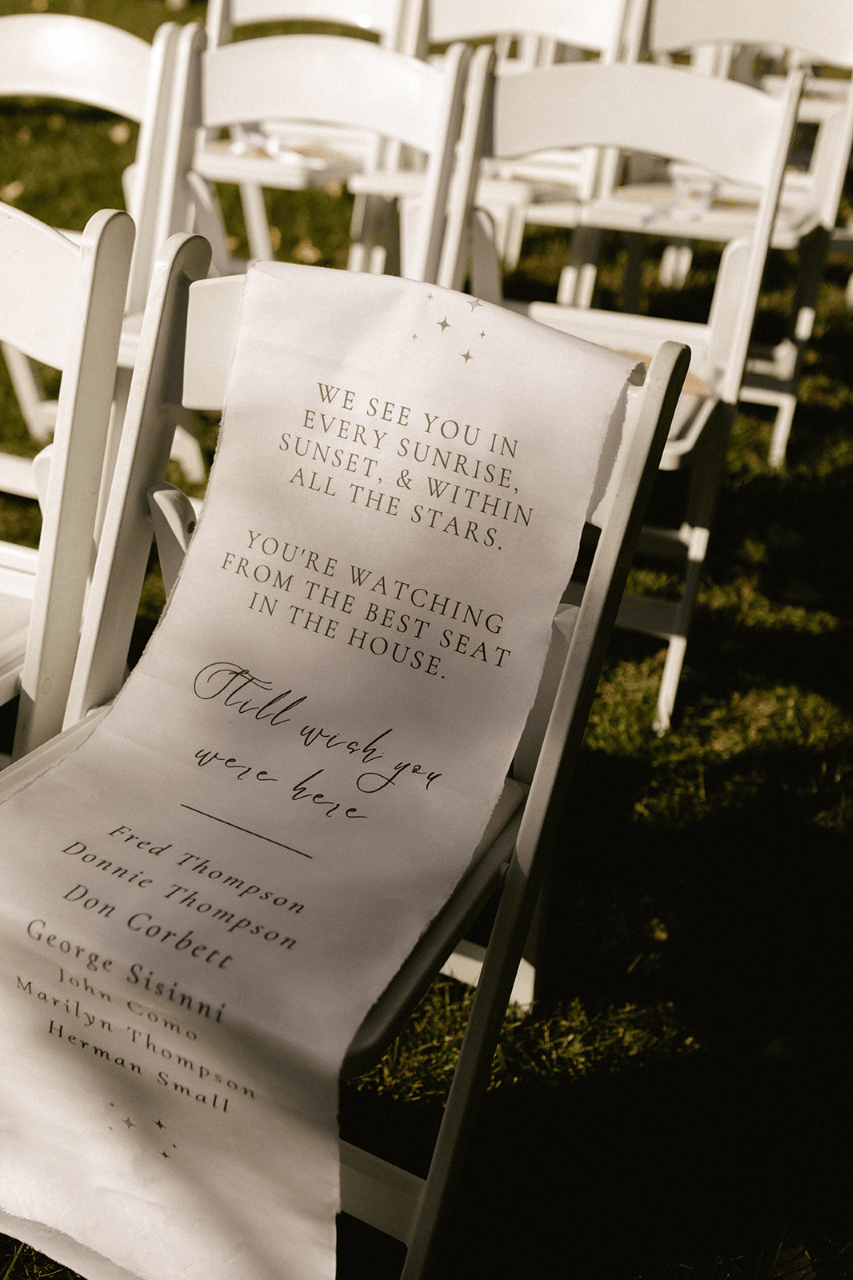 WE SEE YOU IN
EVERY SUNRISE,
SUNSET, & WITHIN
ALL THE STARS.
YOU'RE WATCHING
FROM THE BEST SEAT
IN THE HOUSE.
Still wish you
were here
Fred Thompson
Donnie Thompson
Don Corbett
George Sisinni
John Como
Marilyn Thompson
Herman Small